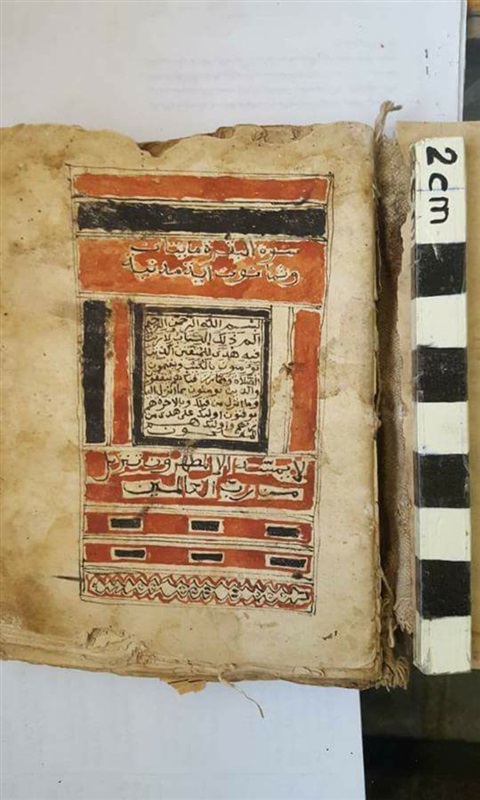 سورة البقرة مايتان
وثمانون اية مدنية
بسم الله الرحمن الرحيم
الم ذلك الكتاب لا ريب
فيه هدى للمتقين الذين
يومنون بالغيب ويقيمون
الصلاة ومما رزقناهم ينفقون
والذين يومنون بما انزل اليك
وما انزل من قبلك وبالاخرة هم
يوقنون اوليك على هدى من
ربهم واوليك هم
المفلحون
لا يمسه الا المطهرون تنزيل
من رب العالمين
2cm